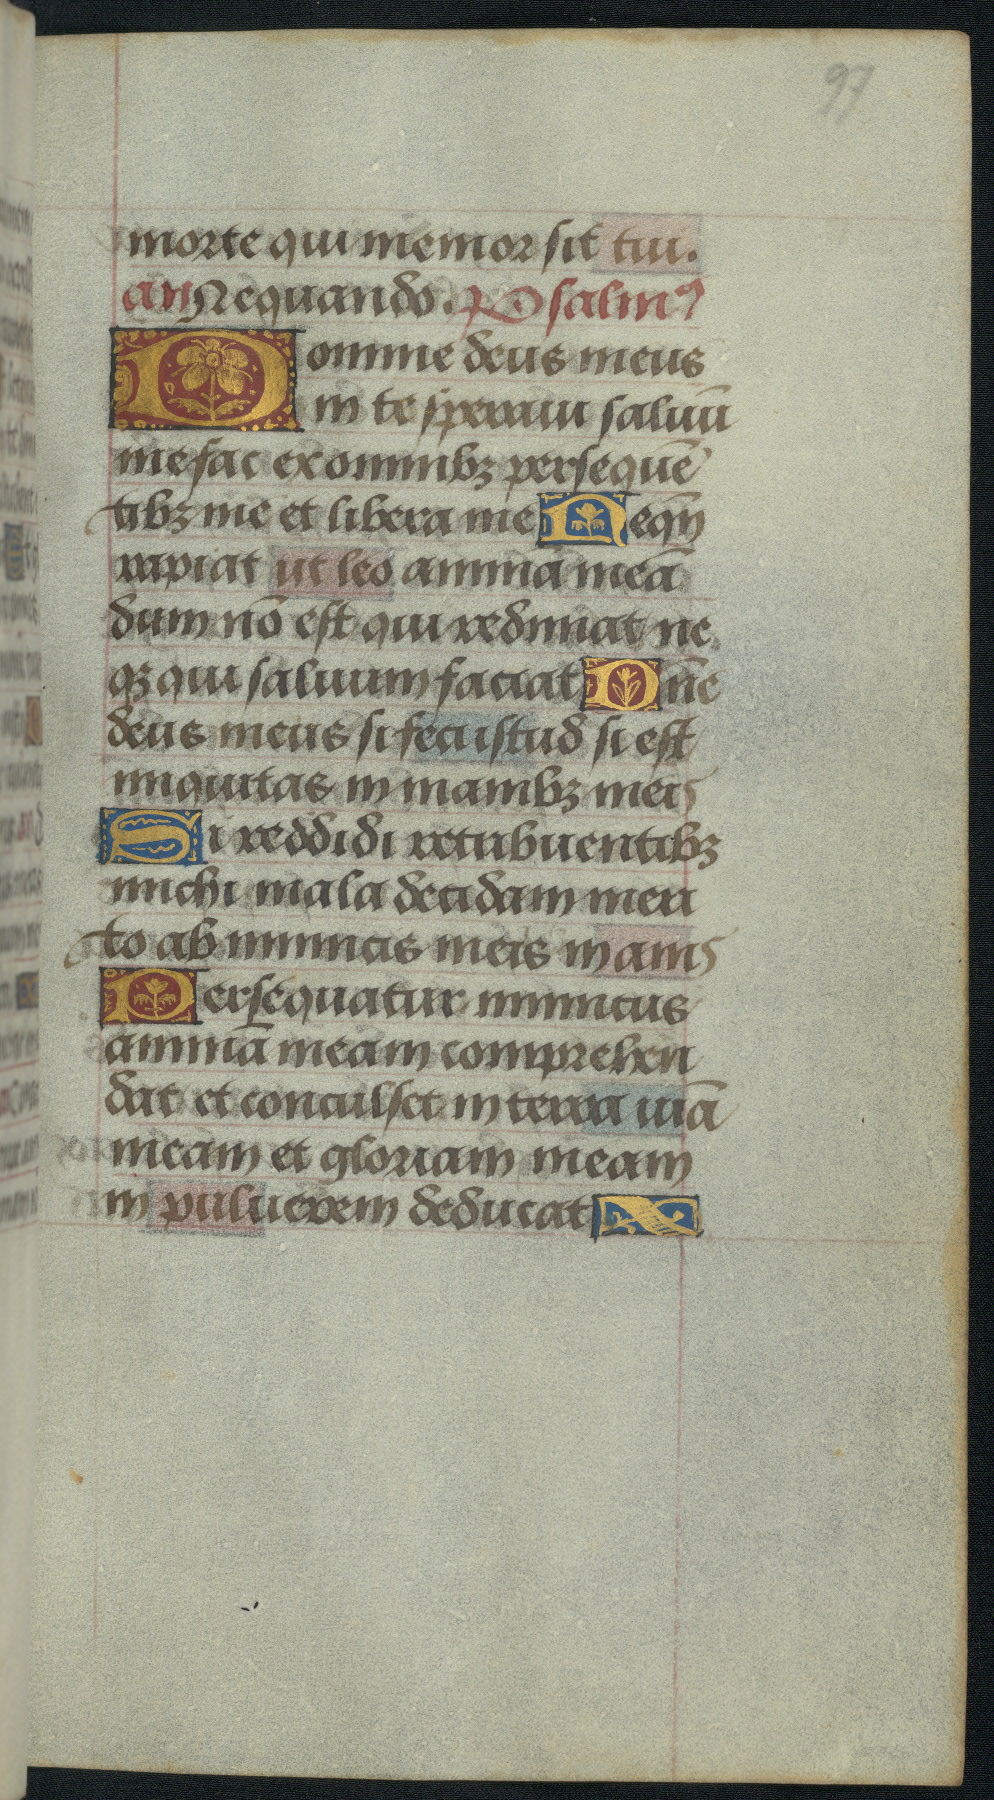 97
morte qui memor sit tui.
añ Nequando. Psalmꝰ
Domine deus meus
in te speraui saluū
me fac ex omnibꝫ persequē
tibꝫ me et libera me Neqn̄
rapiat ut leo animā meā
dum nō est qui redimat ne
qꝫ qui saluum faciat Dn̄e
deus meus si feci istud si est
iniquitas in manibꝫ meis
Si reddidi retribuentibꝫ
michi mala decidam meri
to ab inimicis meis inanis
Persequatur inimicus
animā meam comprehen
dat et conculset in terra uitā
meam et gloriam meam
in puluerem deducat